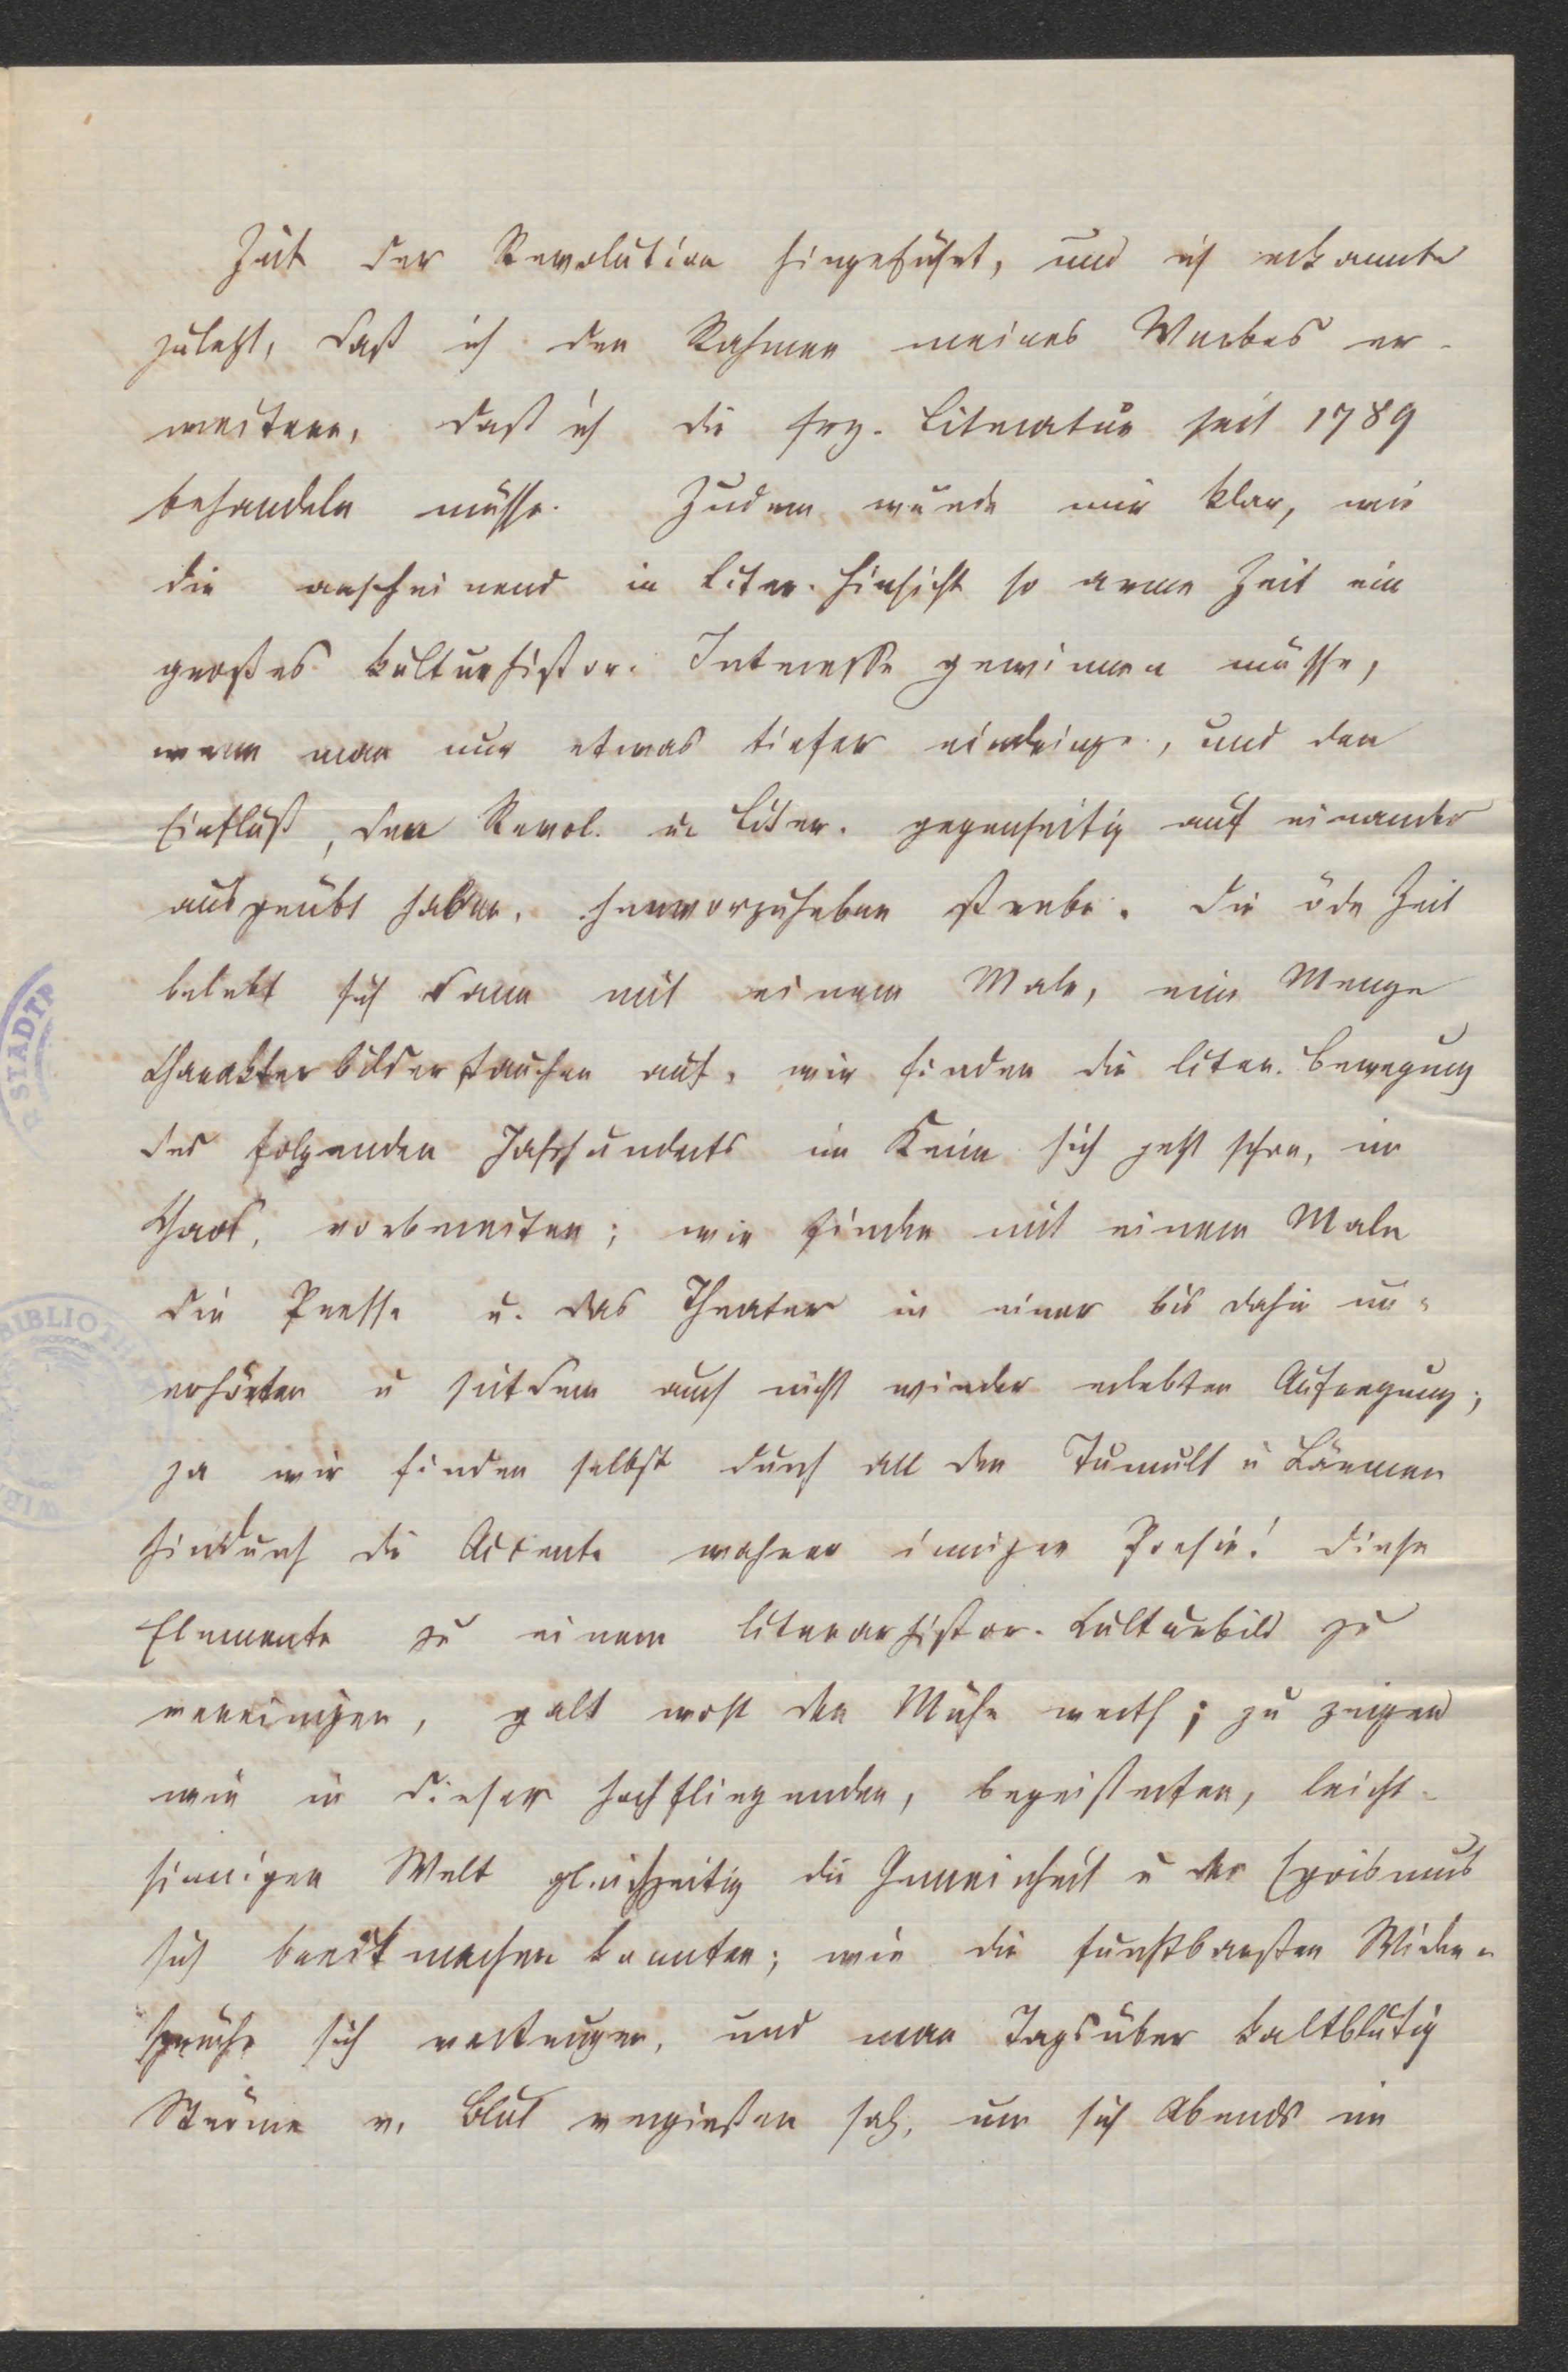 Zeit der Revolution hingeführt, und ich erkannte
zuletzt, daß ich den Rahmen meines Werkes er-
weitern, daß ich die frz. Literatur seit 1789
behandeln müsse. Zudem wurde mir klar, wie
die anscheinend in liter. Hinsicht so arme Zeit ein
großes kulturhistor. Interesse gewinnen müsse,
wenn man nur etwas tiefer eindringe, und den
Einfluß, den Revol. u. Liter. gegenseitig auf einander
ausgeübt haben, hervorzuheben strebe. Die öde Zeit
belebt sich dann mit einem Male, eine Menge
Charakterbilder tauchen auf, wir finden die liter. Bewegung
des folgenden Jahrhunderts im Keim sich jetzt schon, im
Chaos, vorbereiten; wir finden mit einem Male
die Presse u. das Theater in einer bis dahin un-
erhörten u seitdem auch nicht wieder erlebten Aufregung;
ja wir finden selbst durch all den Tumult u Lärmen
hindurch die Accente wahrer inniger Poesie! Diese
Elemente zu einem literarhistor. Culturbild zu
vereinigen, galt wohl der Mühe werth; zu zeigen
wie in dieser hochfliegenden, begeisterten, leicht-
sinnigen Welt gleichzeitig die Gemeinheit u der Egoismus
sich breit machen konnten; wie die furchtbarsten Wider-
sprüche sich vertrugen, und man Tagsüber kaltblütig
Ströme v. Blut vergießen sah, um sich Abends im
STADTB
BIBLIOTH
WIE